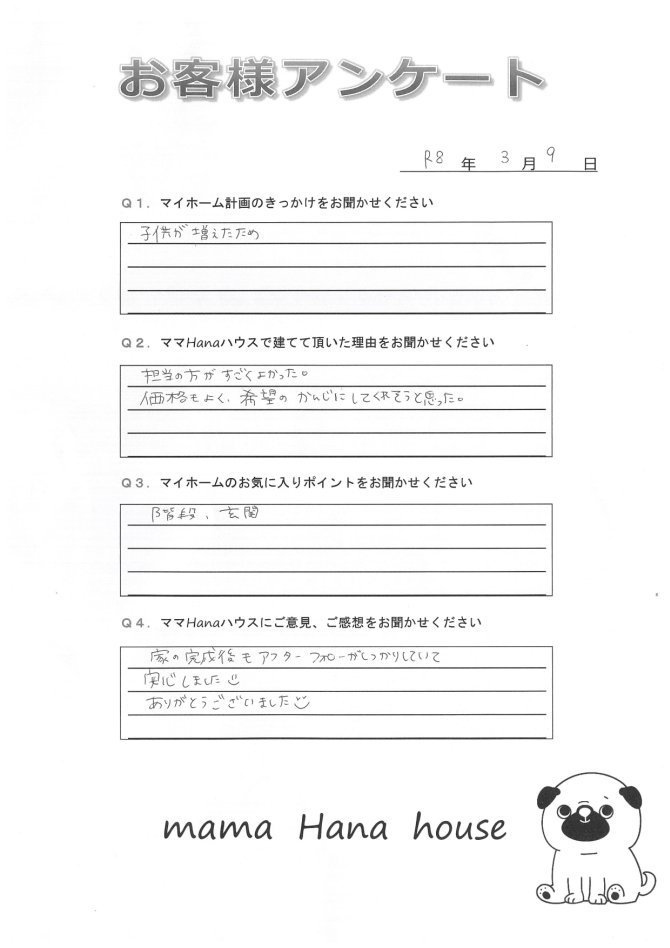 お客様アンケート
R8 年 3 月 9 日
Q1. マイホーム計画のきっかけをお聞かせください
子供が増えたため
Q2. ママHanaハウスで建てて頂いた理由をお聞かせください
担当の方がすごくよかった。
価格もよく、希望のかんじにしてくれそうと思った。
Q3. マイホームのお気に入りポイントをお聞かせください
階段、玄関
Q4. ママHanaハウスにご意見、ご感想をお聞かせください
家の完成後もアフターフォローがしっかりしていて
しました
ありがとうございました
mama Hana house